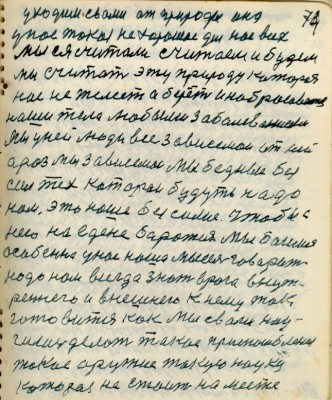 74
уходим свами от природы она
у нас токая не хорошая для нас всех
Мы ся считали считаем и будем
мы считат эту природу которая
нас не жалеет а берёт и набрасывает
на наши тела любыми заболеваниями
Мы у ней люди все зависеми от ней
а раз мы зависеми Мы бедныи без
сил тех которои будуть надо
нам, это наше без силие. Чтобы с
него на едене
Мы баимся
особенна у нас наша мысля говорит
надо нам всегда знат врага внут-
реннего и внешнего к нему так
готовится как мы с вами нау-
чилис делат такое приспоблени
такое оружие такую науку
которая на стоит на месте